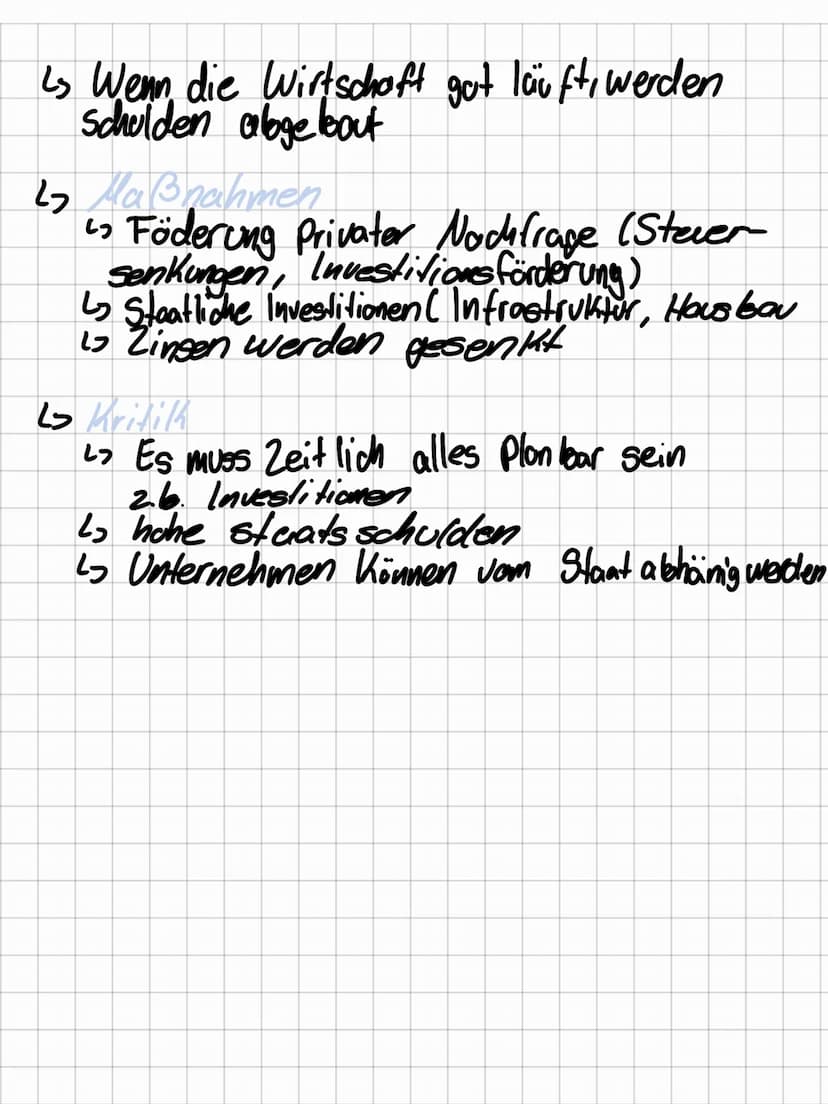 ↳ Wenn die Wirtschaft gut läuft, werden
Schulden abgebaut
↳ Maßnahmen
↳ Föderung Privater Nachfrage (Steuer-
senkungen, Investitionsförderung)
↳ Staatliche Investitionen ( Infrastruktur, Hausbau
↳ Zinsen werden gesenkt
↳ Kritik
↳ Es muss Zeitlich alles Planbar sein
z.b. Investitionen
↳ hohe Staatsschulden
↳ Unternehmen können vom Staat abhänig werden